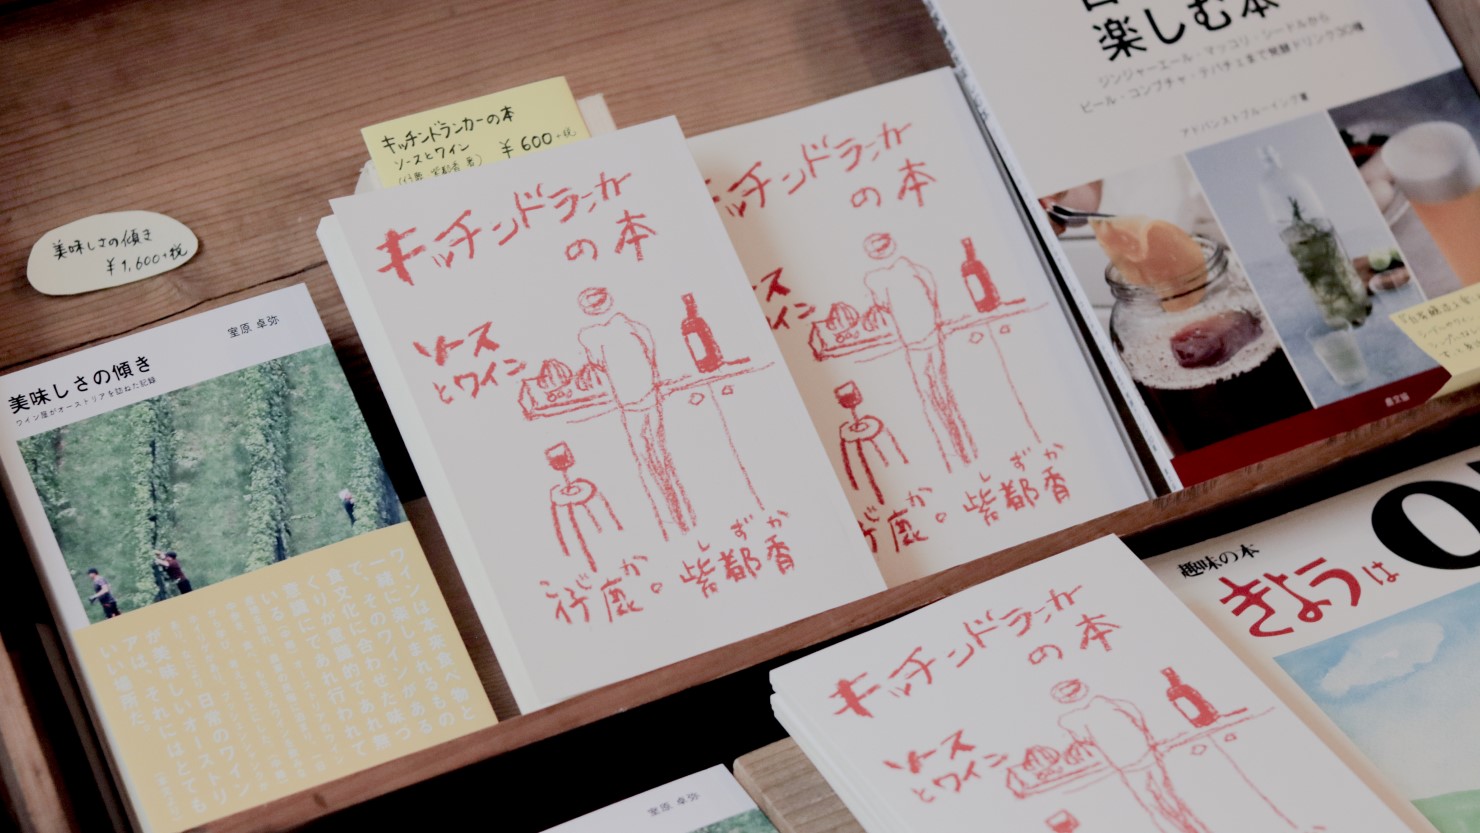 キッチンドランカーの本
ソースとワイン
¥600+税
美味しさの傾き
¥1,600+税
室原 卓弥
美味しさの傾き
ワイン屋がオーストリアを訪ねた記録
ワインは本来食べ物と
一緒に楽しまれるもの
で、そのワインがある
食文化に合わせた味づ
くりが意識的であれ無
意識にであれ行われて
いる
日常のワイン
が美味しいオーストリ
アは、それにはとても
いい場所だ。
キッチンドランカー
の本
ソース
とワイン
しずか
紫都香
か
鹿。
キッチンドランカー
の本
ース
イン
しずか
紫都香
か
鹿。
楽しむ本
ジンジャーエール・マッコリ・シードルから
ビール・コンブチャ・テパチェまで発酵ドリンク30種
アドバンストブルーイング著
農文協
趣味の本
きょうは
キッチンドランカー
の本
ソース
とワイン
室原 卓弥